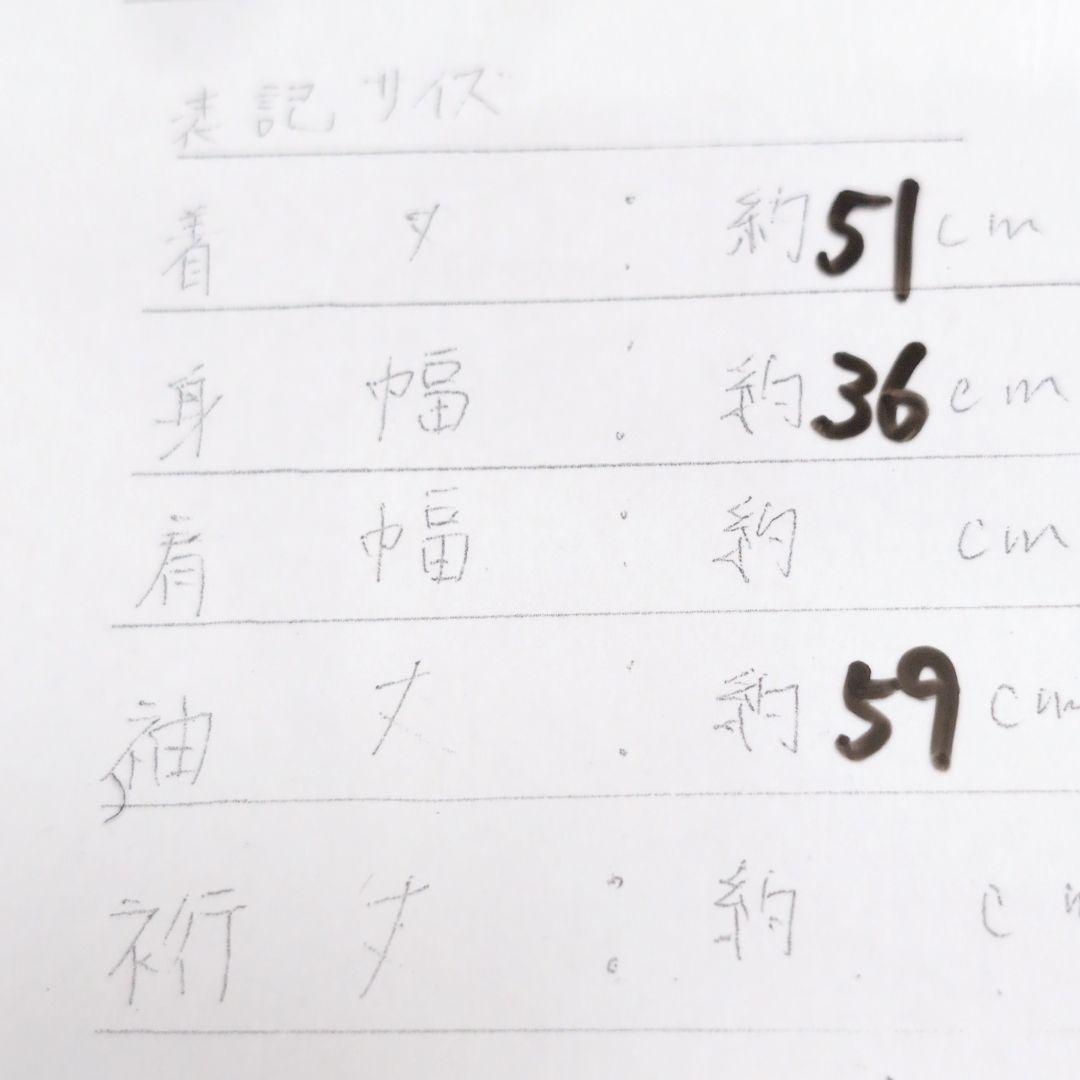 表記サイズ
着 丈 : 約51cm
身 幅 : 約36cm
肩 幅 : 約 cm
袖 丈 : 約59cm
裄 丈 : 約 cm